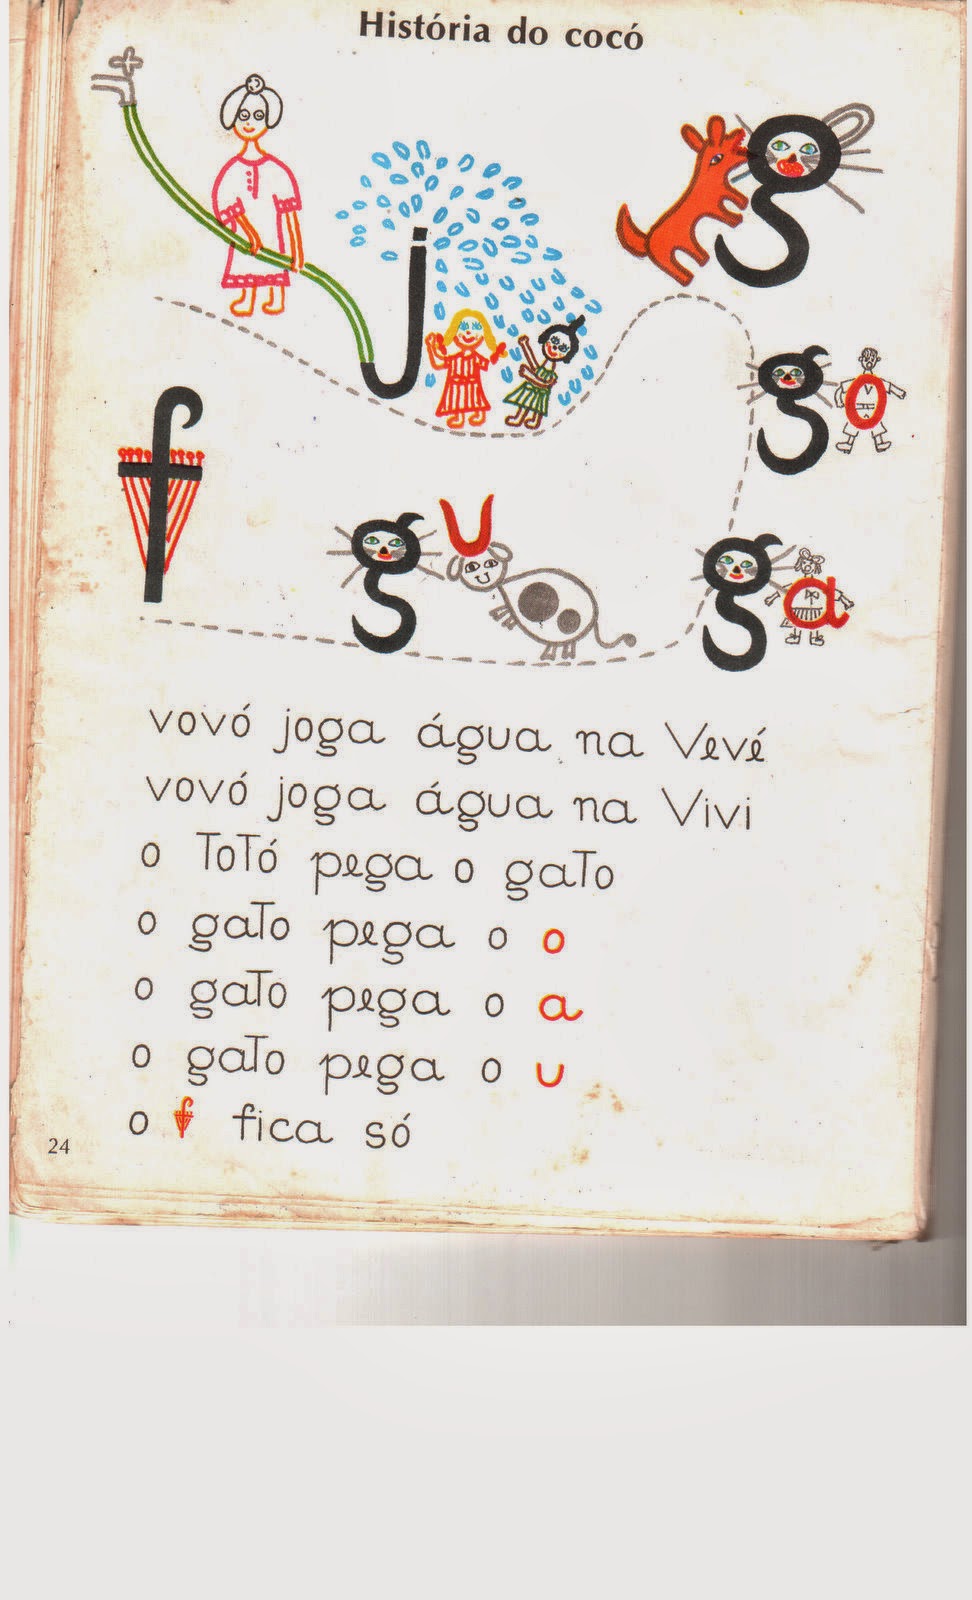 História do cocó
j
g
g o
f
g u
g a
vovó joga água na Vevé
vovó joga água na Vivi
o Totó pega o gato
o gato pega o o
o gato pega o a
o gato pega o u
o f fica só
24